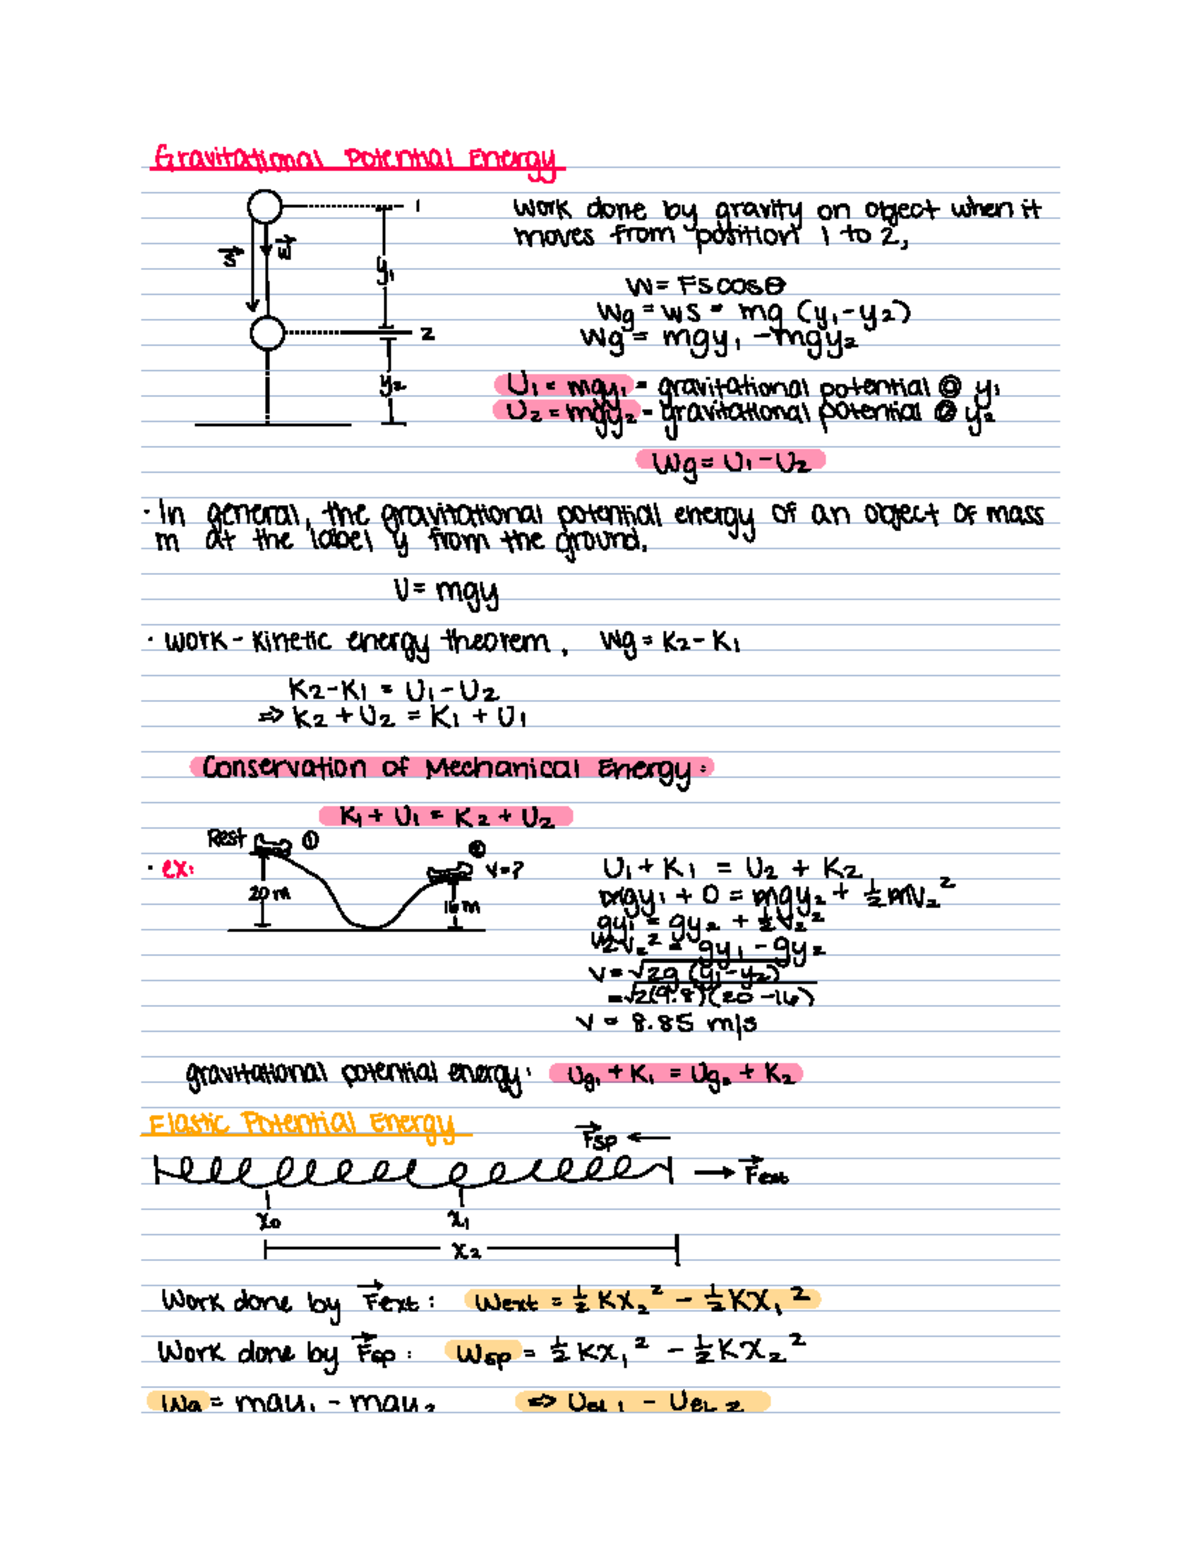 Gravitational Potential Energy
1
s w
y₁
2
y₂
work done by gravity on object when it
moves from position 1 to 2,
W = Fscosθ
Wg = ws = mg (y₁ - y₂)
Wg = mgy₁ - mgy₂
U₁ = mgy₁ - gravitational potential @ y₁
U₂ = mgy₂ - gravitational potential @ y₂
Wg = U₁ - U₂
· In general, the gravitational potential energy of an object of mass
m at the label y from the ground.
U = mgy
· work - kinetic energy theorem, Wg = K₂ - K₁
K₂ - K₁ = U₁ - U₂
=> K₂ + U₂ = K₁ + U₁
Conservation of Mechanical Energy:
K₁ + U₁ = K₂ + U₂
Rest ①
②
· ex:
v = ?
20 m
16 m
U₁ + K₁ = U₂ + K₂
mgy₁ + 0 = mgy₂ + ½mv₂²
gy₁ = gy₂ + ½v₂²
½v₂² = gy₁ - gy₂
v = √2g (y₁ - y₂)
= √2(9.8)(20 - 16)
v = 8.85 m/s
gravitational potential energy: Ug₁ + K₁ = Ug₂ + K₂
Elastic Potential Energy
Fsp
Fext
x₀
x₁
x₂
Work done by Fext: Wext = ½ Kx₂² - ½Kx₁²
Work done by Fsp: Wsp = ½ Kx₁² - ½Kx₂²
Wg = mgy₁ - mgy₂ => UeL1 - UeL2